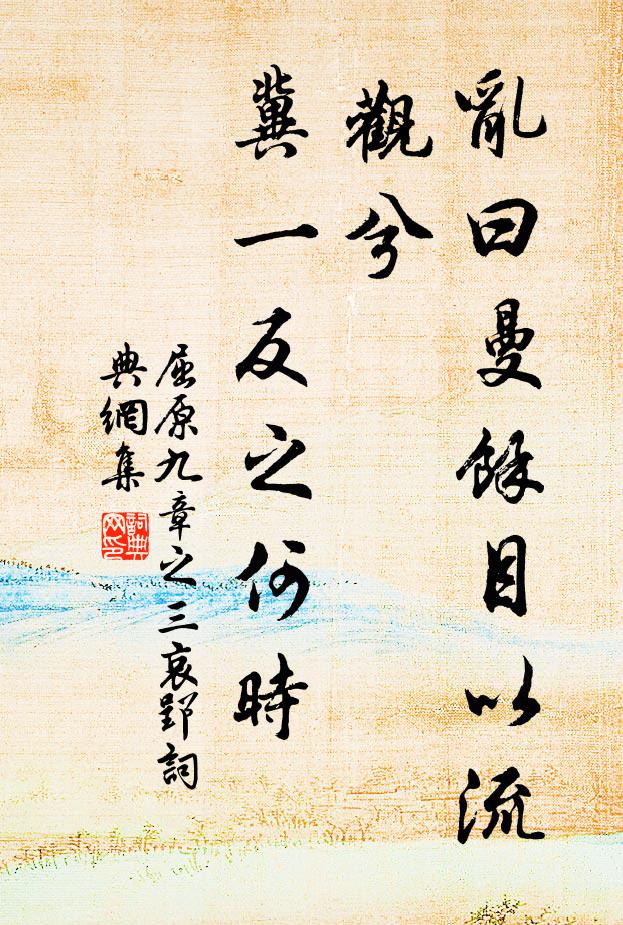 亂曰曼餘目以流
觀兮
冀一反之何時
屈原九章之三哀郢詞
典網集
詞典
网印